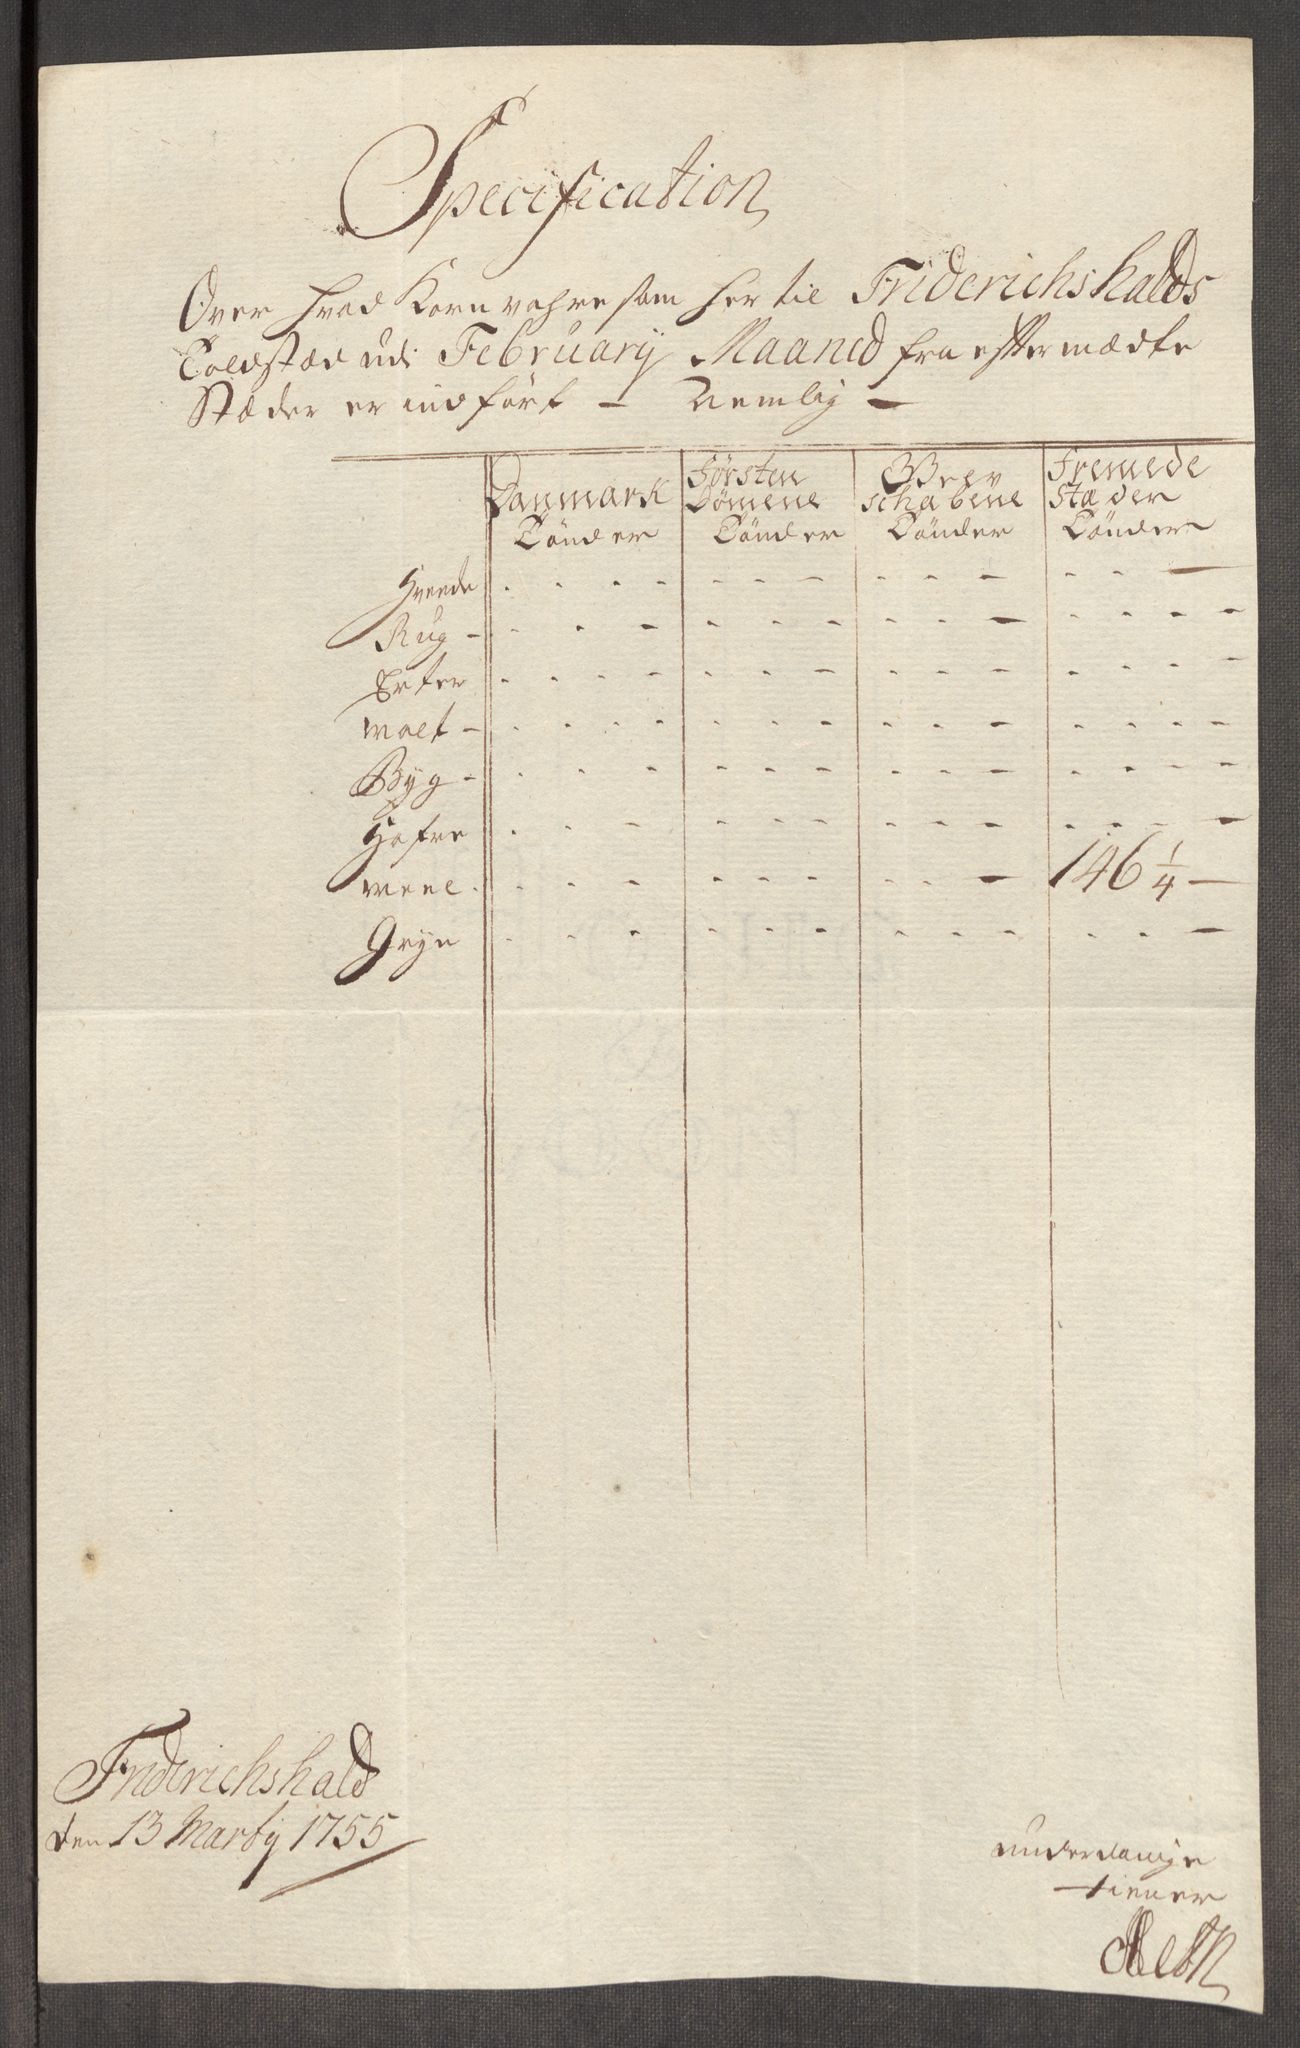 Specification
Over hvad Kornvahre som her til Friderichshalds
Toldstæd udi February Maaned fra eftermædte
Stæder er indført - Nemlig -
Danmark Førsten Grev Fremede
Dømene schabene stæder
Tønder Tønder Tønder Tønder
Hveede
Rug -
Erter
Malt -
Byg -
Hafre
Meel 146 1/4 -
Gryn
Friderichshald
den 13 Marty 1755
underdanige
tiener